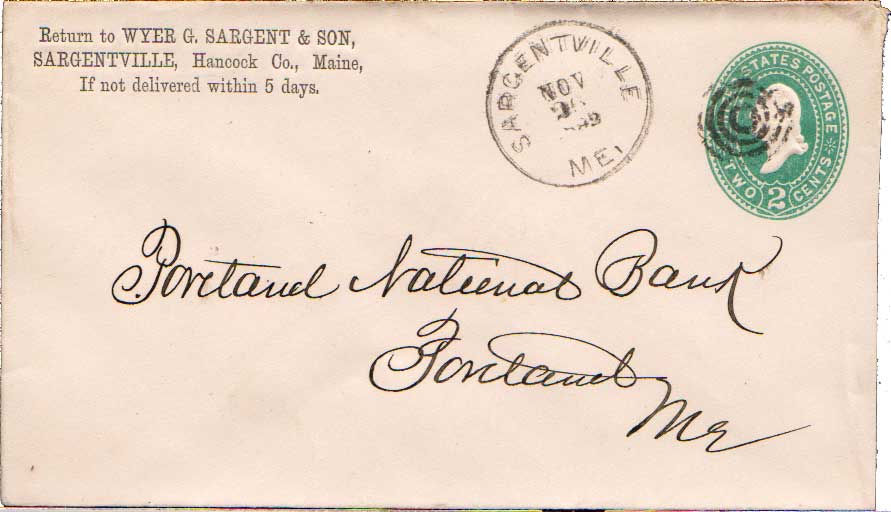 Return to WYER G. SARGENT & SON,
SARGENTVILLE, Hancock Co., Maine,
If not delivered within 5 days.
SARGENTVILLE
NOV
ME.
STATES POSTAGE
TWO 2 CENTS
Portland National Bank
Portland
Me